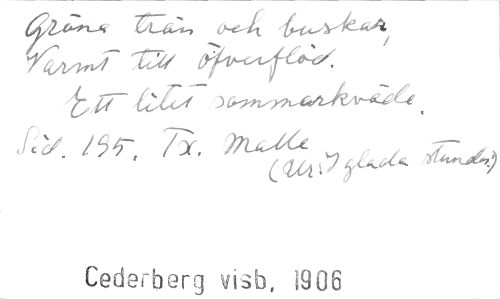 Gröna trän och buskar,
Varmt till öfverflöd.
Ett litet sommarkväde.
Sid. 195. Tx. Malle
(Ur: I glada stunder)
Cederberg visb, 1906